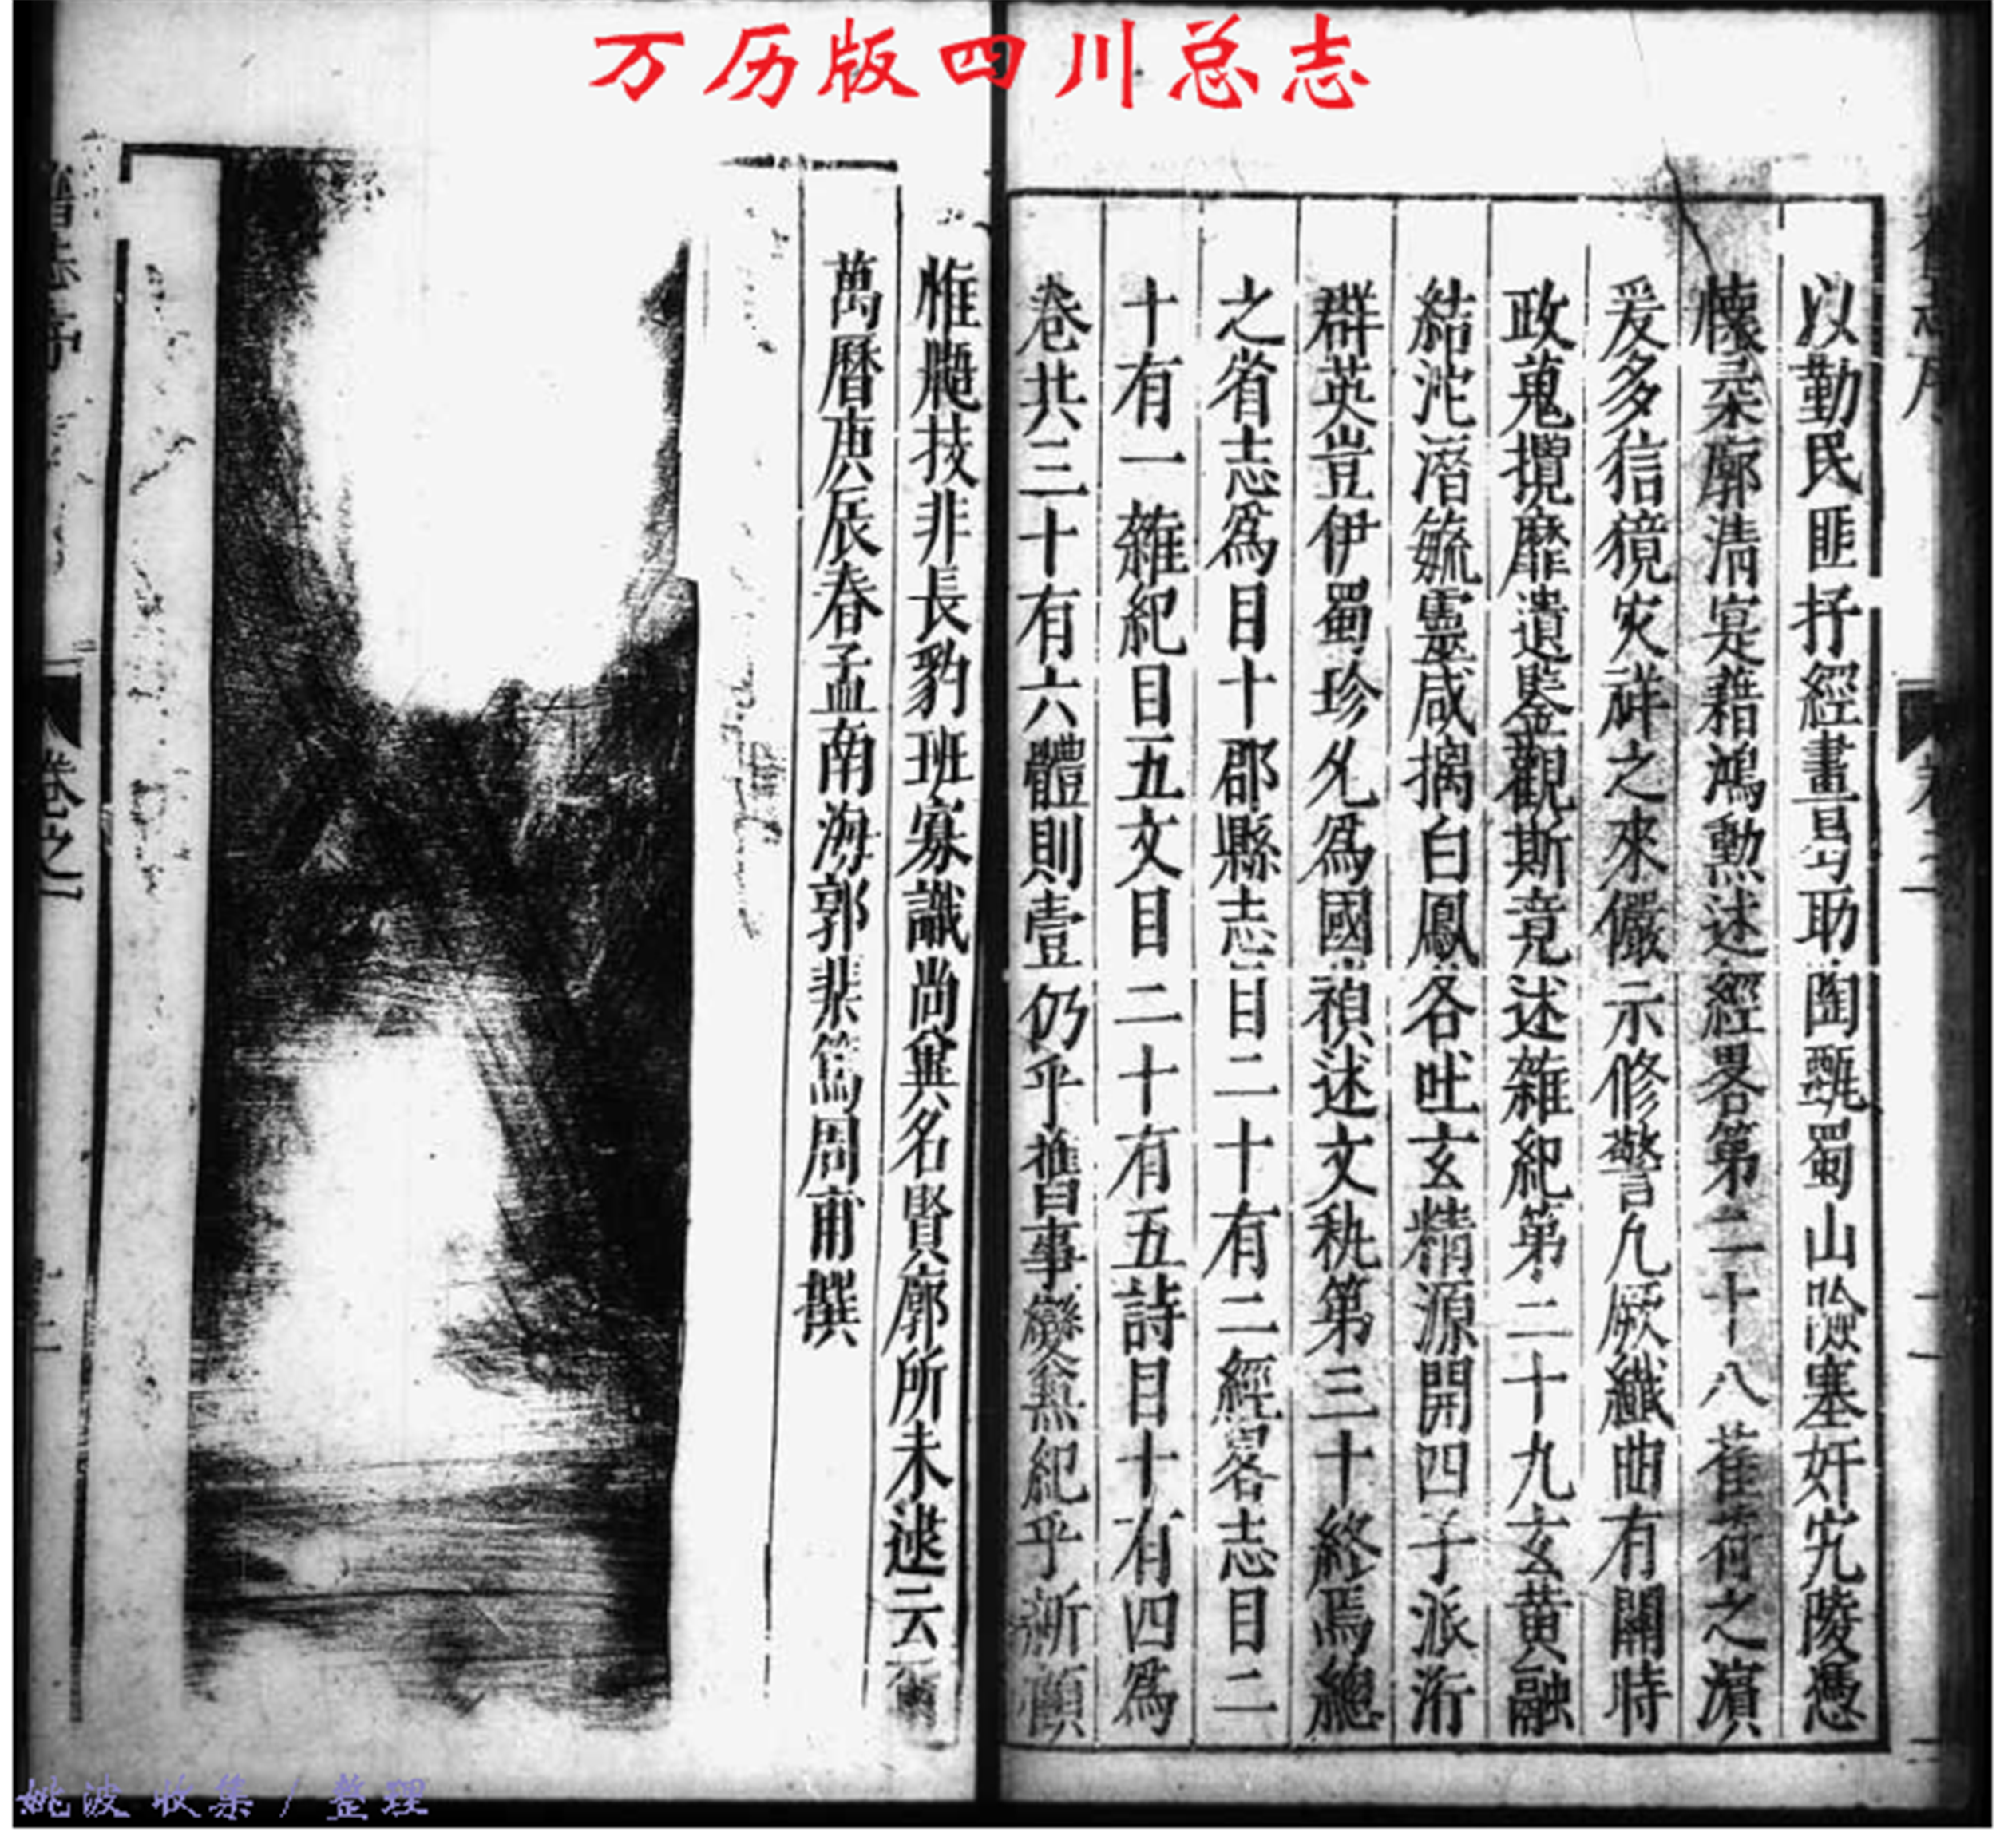 万历版四川总志
以勤民匪抒經畫曷助陶甄蜀山險塞奸宄陵憑
懷柔廓清寔藉鴻勲述經畧第二十八萑苻之濵
爰多信獍灾祥之來儼示修警凢厥纖曲有關時
政蒐攬靡遺鑒觀斯竟述雜紀第二十九玄黄融
結沱潛毓靈咸摛白鳳各吐玄精源開四子派洐
群英豈伊蜀珍允爲國禎述文秇第三十終焉總
之省志爲目十郡縣志目二十有二經畧志目二
十有一雜紀目五文目二十有五詩目十有四爲
巻共三十有六體則壹仍乎舊事變無紀乎新顧
惟鼯技非長豹班寡識尚兾名賢廓所未逮云爾
萬曆庚辰春孟南海郭棐篤周甫撰
卷之一
姚波 收集 / 整理